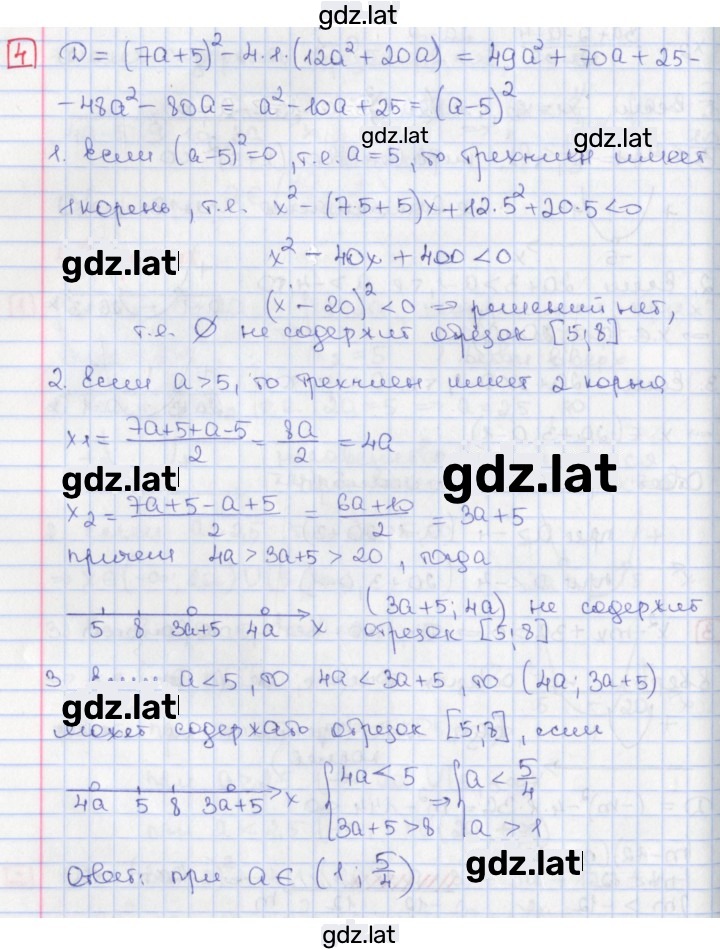 gdz.lat
4 D = (7a+5)² - 4·1·(12a² + 20a) = 49a² + 70a + 25 -
- 48a² - 80a = a² - 10a + 25 = (a-5)²
gdz.lat gdz.lat
1. Если (a-5)² = 0, т.е. a = 5, то трехчлен имеет
1 корень, т.е. x² - (7·5+5)x + 12·5² + 20·5 < 0
gdz.lat x² - 40x + 400 < 0
(x - 20)² < 0 ⇒ решений нет,
т.е. ∅ не содержит отрезок [5;8]
2. Если a > 5, то трехчлен имеет 2 корня
x1 = (7a+5+a-5)/2 = 8a/2 = 4a
gdz.lat gdz.lat
x2 = (7a+5-a+5)/2 = (6a+10)/2 = 3a+5
причем 4a > 3a+5 > 20, тогда
5 8 3a+5 4a x (3a+5; 4a) не содержит
отрезок [5;8]
3 a < 5, то 4a < 3a+5, то (4a; 3a+5)
gdz.lat
может содержать отрезок [5;8], если
4a 5 8 3a+5 x {4a < 5 ⇒ {a < 5/4
3a+5 > 8 a > 1
Ответ: при a ∈ (1; 5/4)
gdz.lat
gdz.lat